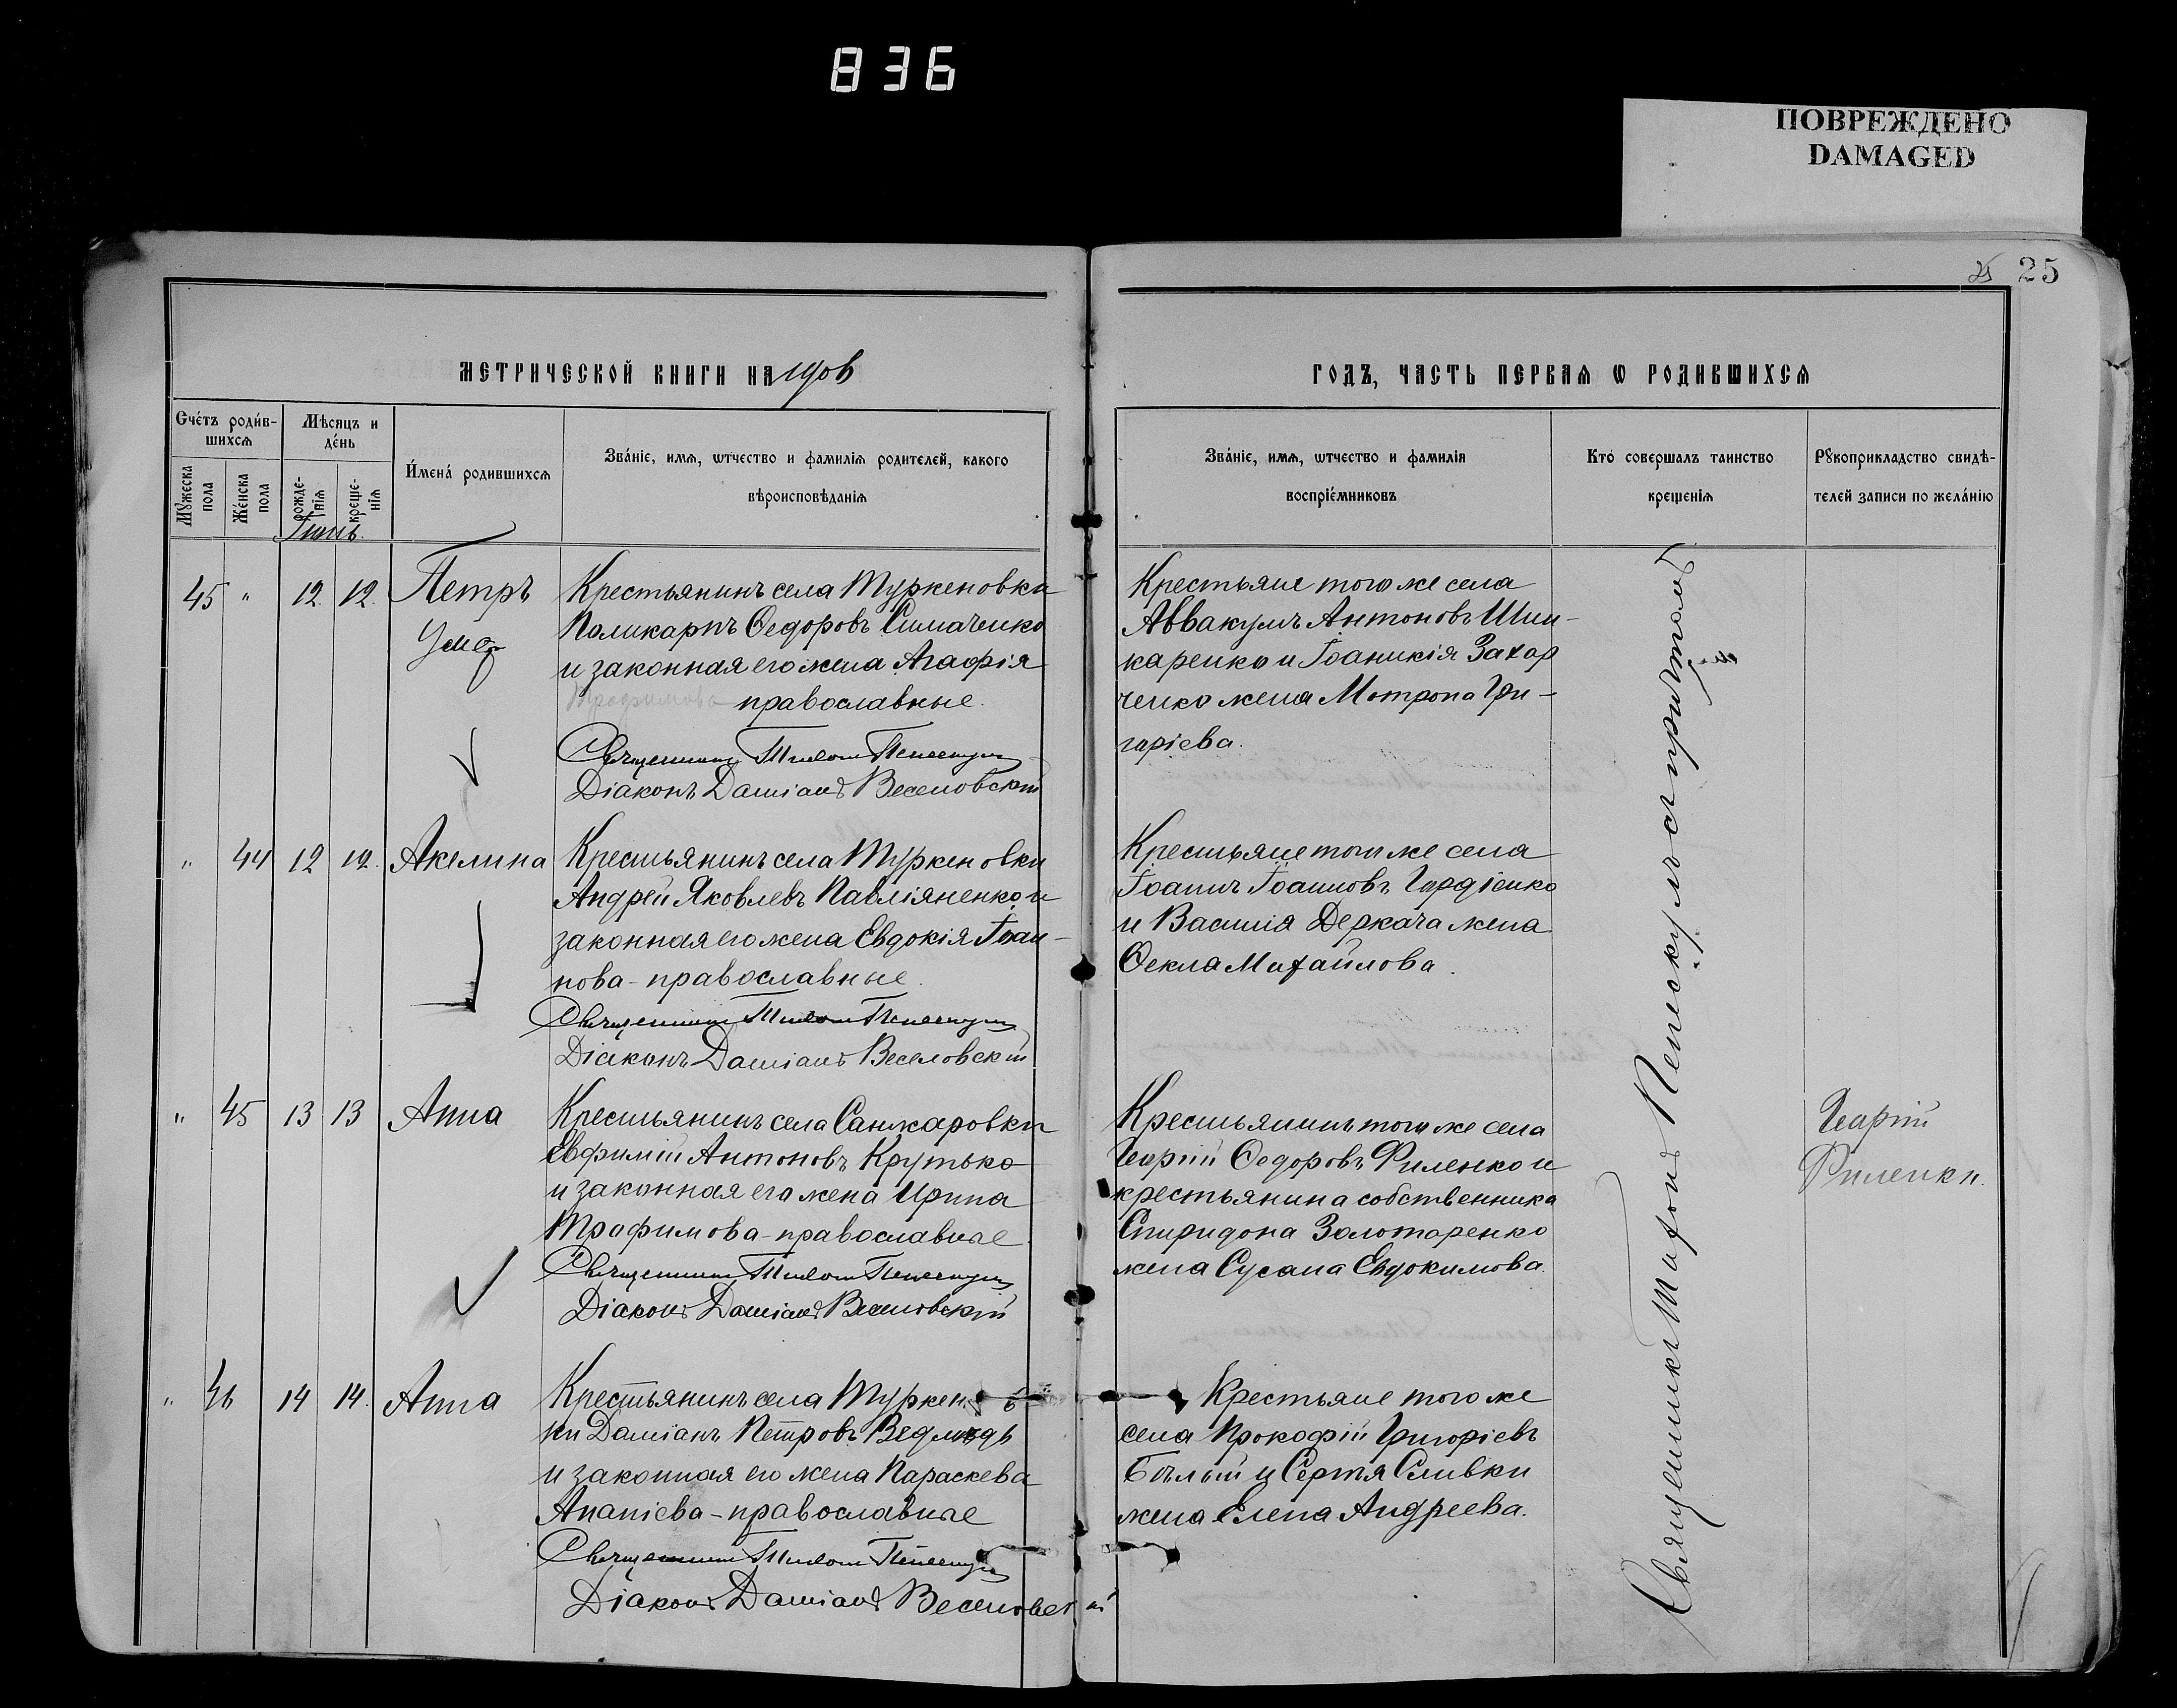 836
ПОВРЕЖДЕНО
DAMAGED
25 25
МЕТРИЧЕСКОЙ КНИГИ НА 1906 ГОДЪ, ЧАСТЬ ПЕРВАЯ Ѡ РОДИВШИХСЯ
Счетъ родившихся
Мѣсяцъ и день
Мꙋжеска пола
Женска пола
рожденія
крещенія
Имена родившихся
Званіе, имя, ѿчество и фамилія родителей, какого
вѣроисповѣданія
Званіе, имя, ѿчество и фамилія
воспріемниковъ
Кто совершалъ таинство
крещенія
Рꙋкоприкладство свидѣ-
телей записи по желанію
45 " 12 12. Петръ
Умеръ
Крестьянинъ села Туркеновки
Поликарпъ Ѳедоровъ Симаченко
и законная его жена Агафія
Трофимова православные.
Священникъ Тихонъ Пенескулъ
Діаконъ Даміанъ Веселовскій
Крестьяне того же села
Аввакумъ Антоновъ Шин-
каренко и Іоанникія Захар
ченко жена Мотрона Гри-
горіева.
" 44 12 12. Акелина
Крестьянинъ села Туркеновки
Андрей Яковлевъ Павліяненко и
законная его жена Евдокія Іоан-
нова - православные.
Священникъ Тихонъ Пенескулъ
Діаконъ Даміанъ Веселовскій
Крестьяне того же села
Іоаннъ Іоанновъ Гордіенко
и Василія Деркача жена
Ѳекла Михайлова.
" 45 13 13 Анна
Крестьянинъ села Санжаровки
Евфимій Антоновъ Крутько
и законная его жена Ирина
Трофимова - православные
Священникъ Тихонъ Пенескулъ
Діаконъ Даміанъ Веселовскій
Крестьянинъ того же села
Георгій Ѳедоровъ Филенко и
крестьянина собственника
Спиридона Золотаренко
жена Сусана Евдокимова.
Георгій
Филенко.
" 46 14 14. Анна
Крестьянинъ села Туркенов
ки Даміанъ Петровъ Ведмедь
и законная его жена Параскева
Ананіева - православные
Священникъ Тихонъ Пенескулъ
Діаконъ Даміанъ Веселовскій
Крестьяне того же
села Прокофій Григоріевъ
Бѣлый и Сергѣя Сливки
жена Елена Андреева.
Священникъ Тихонъ Пенескулъ съ причтомъ